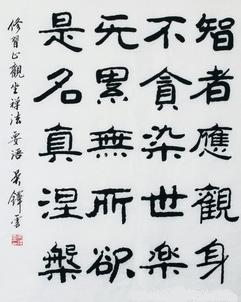 智者應觀身
不貪染世楽
无累無所欲
是名真涅槃
修習止觀坐禅法要语